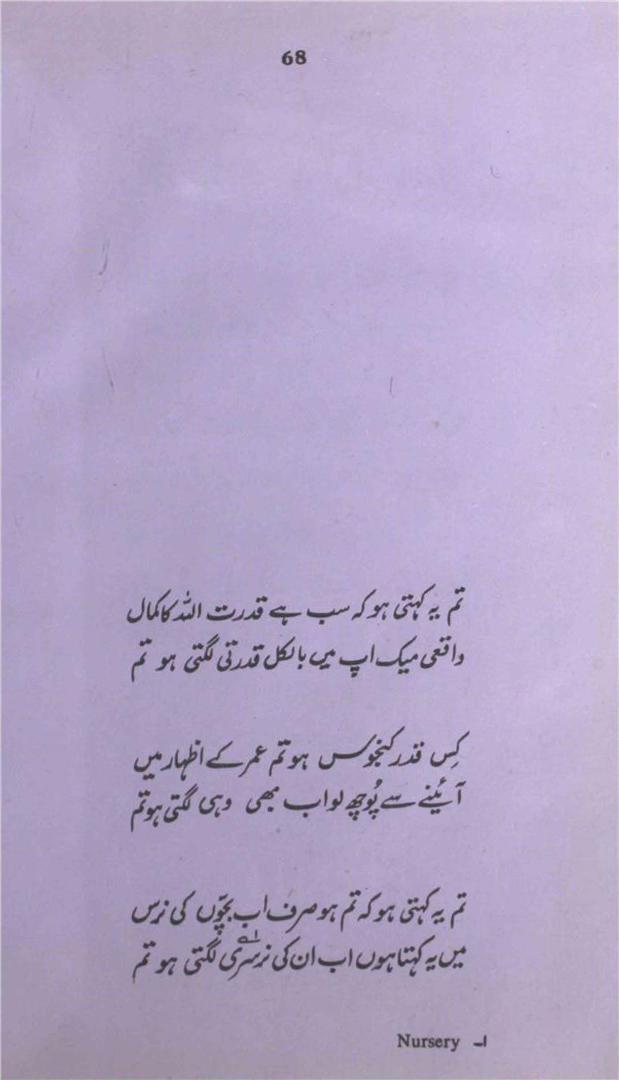 68
تم یہ کہتی ہو کہ سب ہے قدرت اللہ کا کمال
واقعی میک اپ میں بالکل قدرتی لگتی ہو تم
کِس قدر کنجوس ہو تم عمر کے اظہار میں
آئینے سے پُوچھ لو اب بھی وہی لگتی ہو تم
تم یہ کہتی ہو کہ تم ہو صرف اب بچّوں کی نرس
میں یہ کہتا ہوں اب ان کی نرسری۱ لگتی ہو تم
۱۔ Nursery